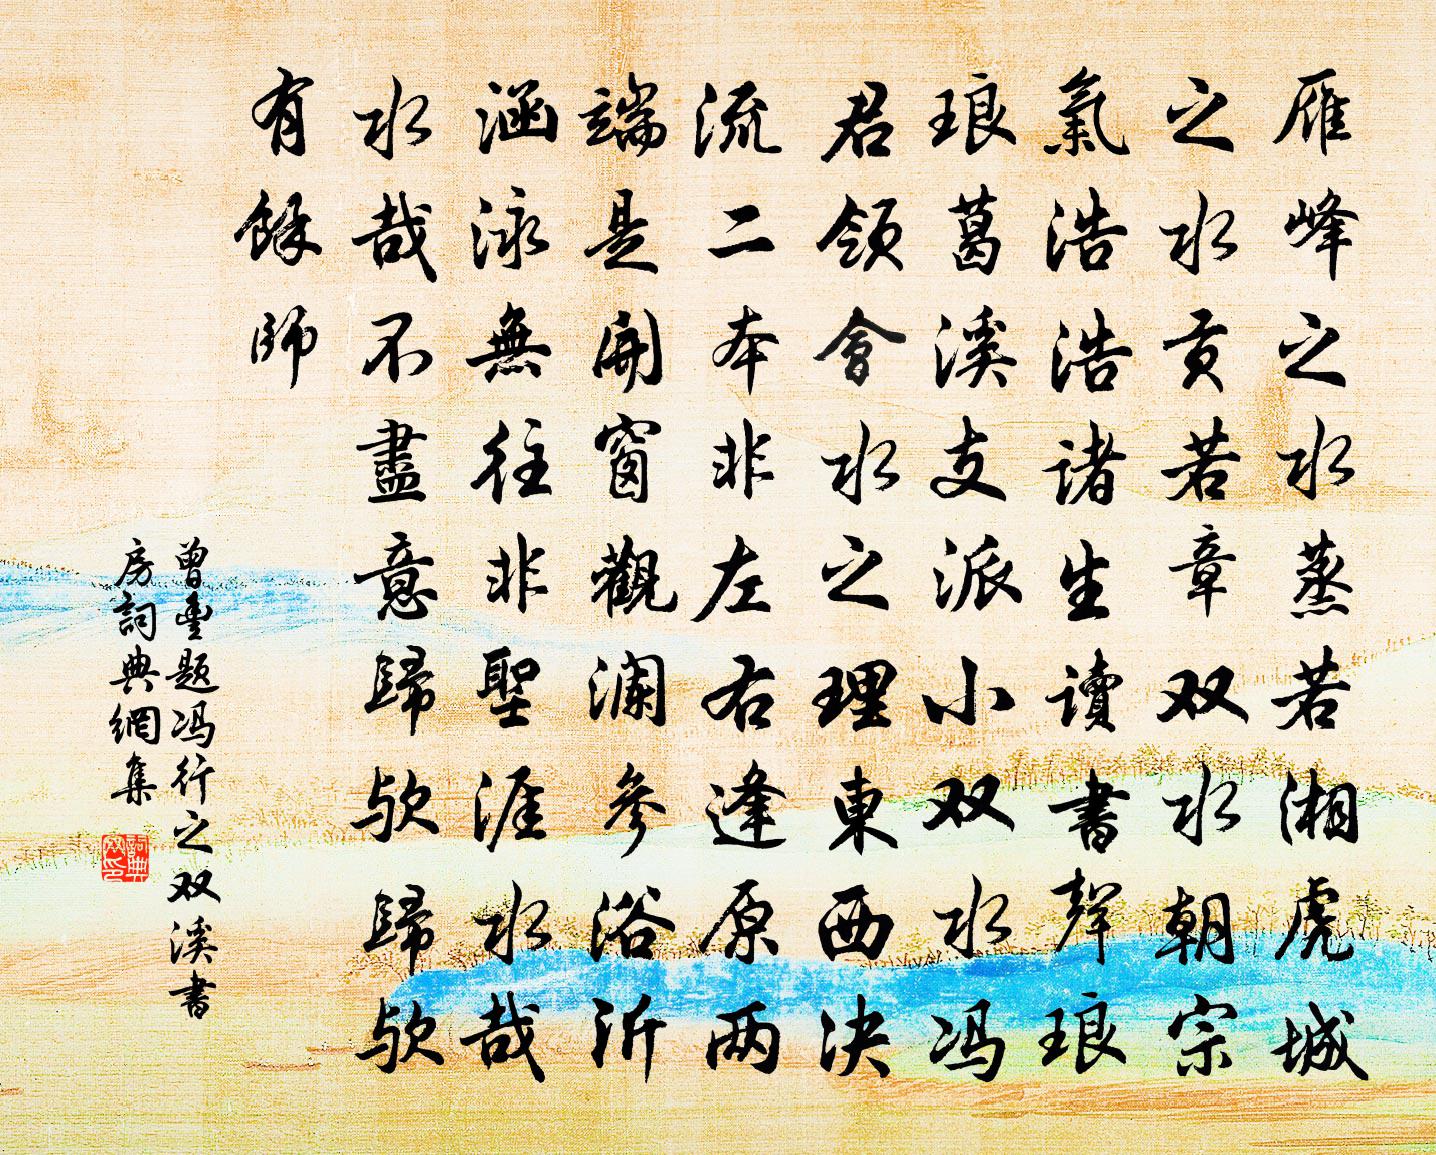 雁峰之水蒸若湘虎城
之水贡若章双水朝宗
氣浩浩诸生讀書聲琅
琅葛溪支派小双水冯
君领會水之理東西决
流二本非左右逢原两
端是開窗觀澜参浴沂
涵泳無往非聖涯水哉
水哉不盡意歸欤歸欤
有餘师
曾豊题冯行之双溪書
房詞典網集
詞典网印